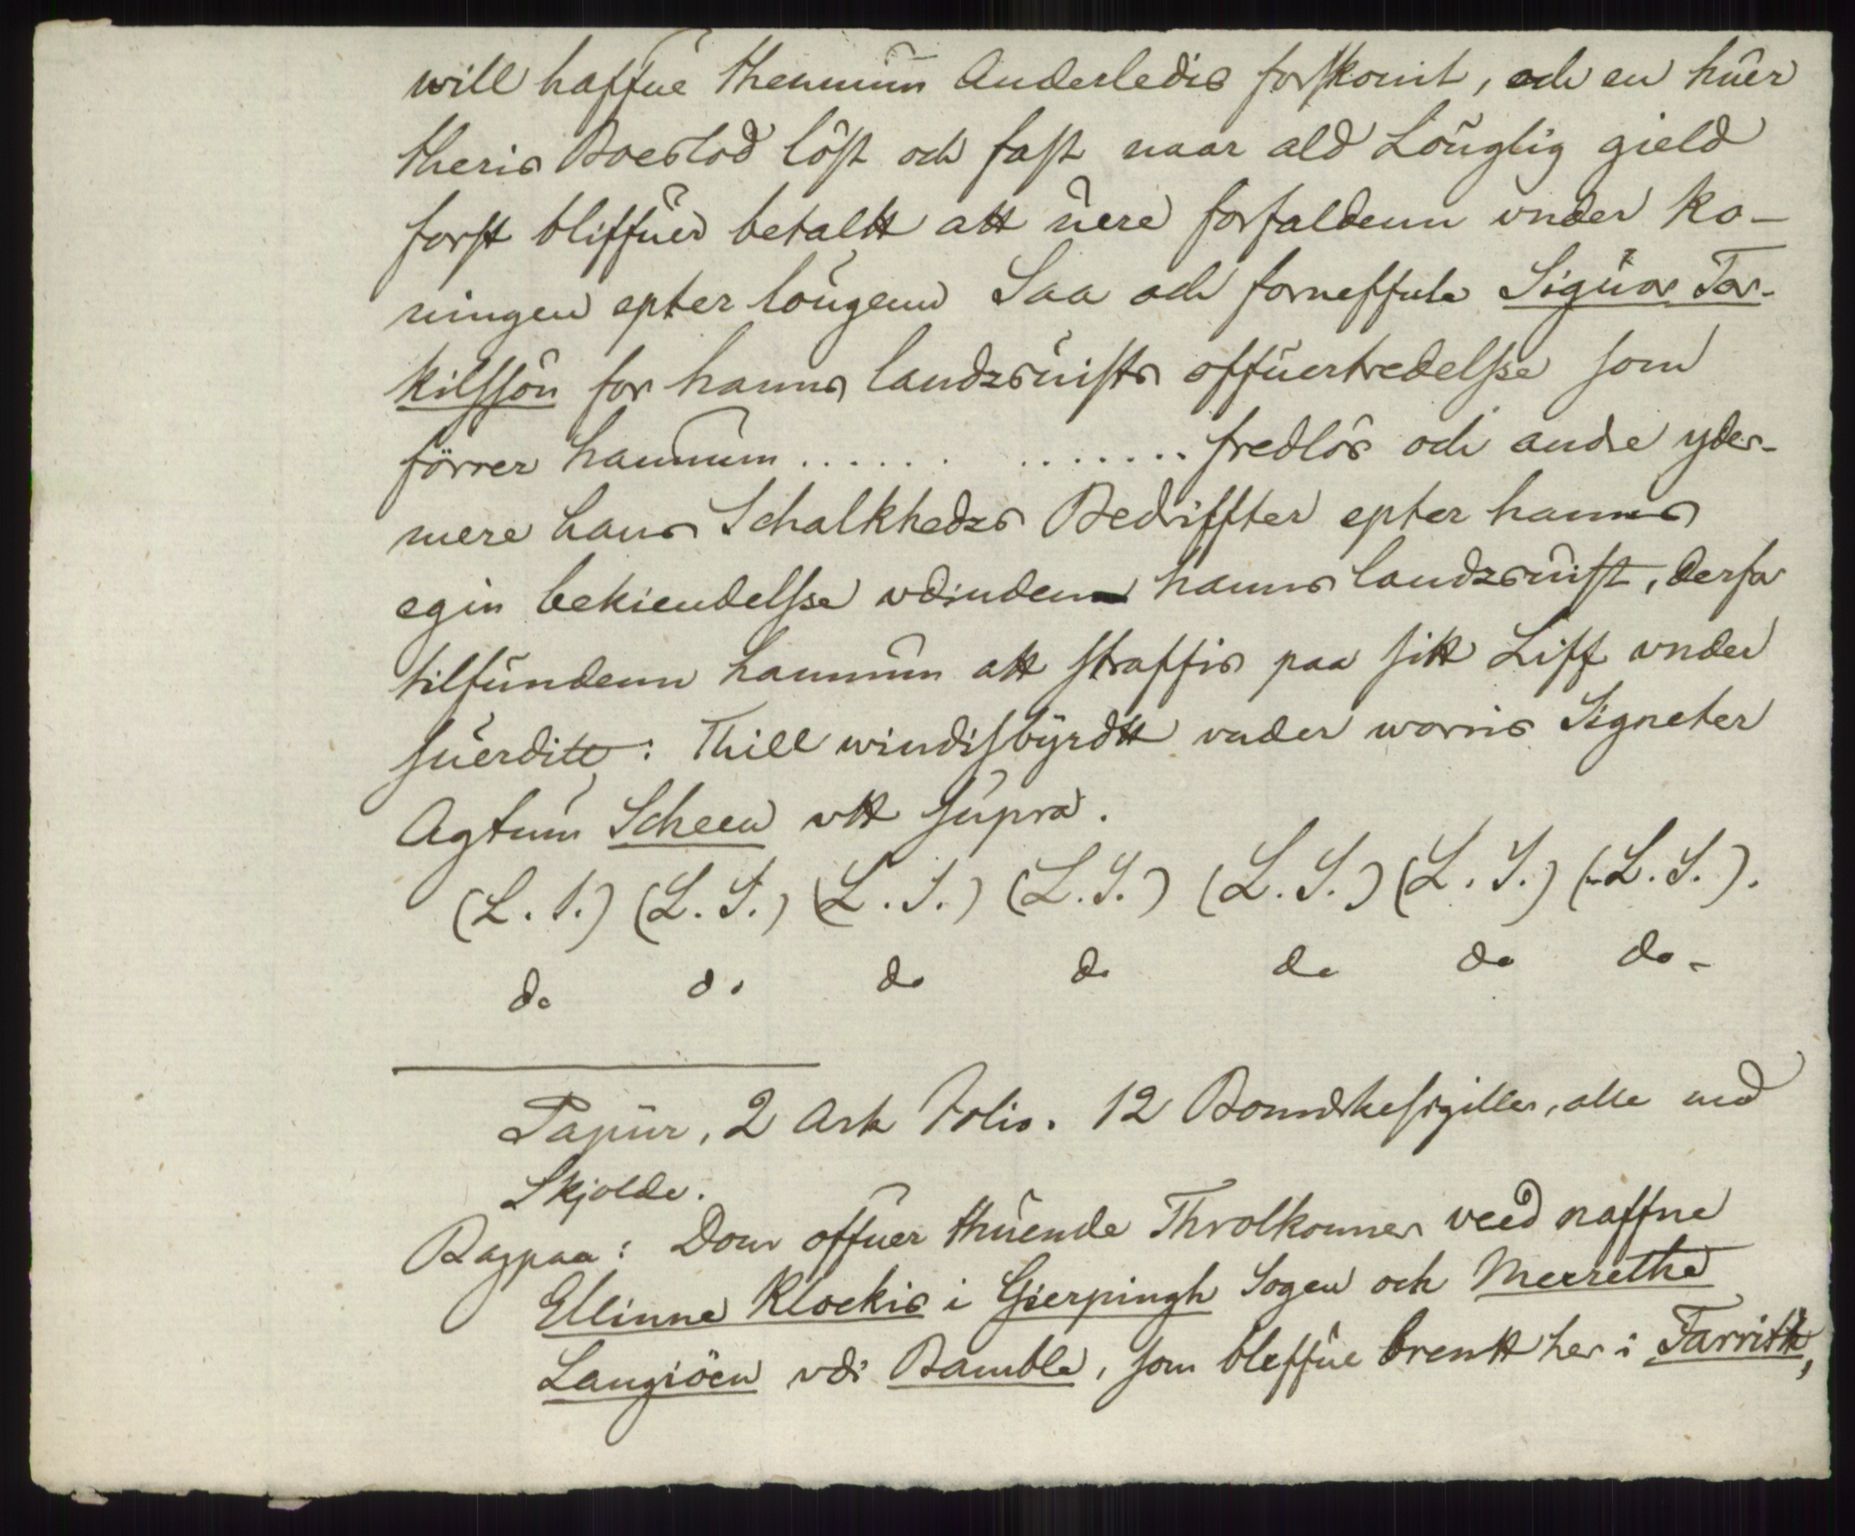 will haffue themnum Anderledis forskonit, och en huer
theris Boeslod löst och fast naar ald Louglig gield
forst bliffuer betaltt att uere forfaldenn vnder Ko-
ningen epter lougenn Saa och forneffnte Siguor Tor-
kilssön for hanns landzsuists offuertredelsse som
förrer hannum ...... ....... fredlös och andre yder-
mere hans Schalkhedzs Bedriffter epter hanns
egin bekiendelsse vdindenn hanns landzsuist, derfor
tilfundenn hannum att straffis paa sitt Liff vnder
suerditt: Thill windisbyrdtt vnder worris Signeter
Agtum Scheen vtt supra.
(L. S.) (L. S.) (L. S.) (L. S.) (L. S.) (L. S.) (L. S.).
do do do do do do do-
Papiir, 2 Ark Folio. 12 Bomærkesigiller, alle med
Skjolde.
Bagpaa: Dom offuer thuende Throlkonner veed naffne
Ellinne Klockis i Gierpingh Sogen och Meerethe
Langiöen vdi Bamble, som bleffue brentt her i Farrisk,